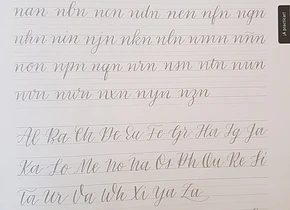 nan nbn ncn ndn nen nfn ngn
nhn nin njn nkn nln nmn nnn
non npn nqn nrn nsn ntn nun
nvn nwn nxn nyn nzn
Al Ba Ch De Eu Fe Gr Ha Ig Ja
Ka Lo Me No Na Os Ph Qu Re Si
Ta Ur Va Wh Xi Ya Zu